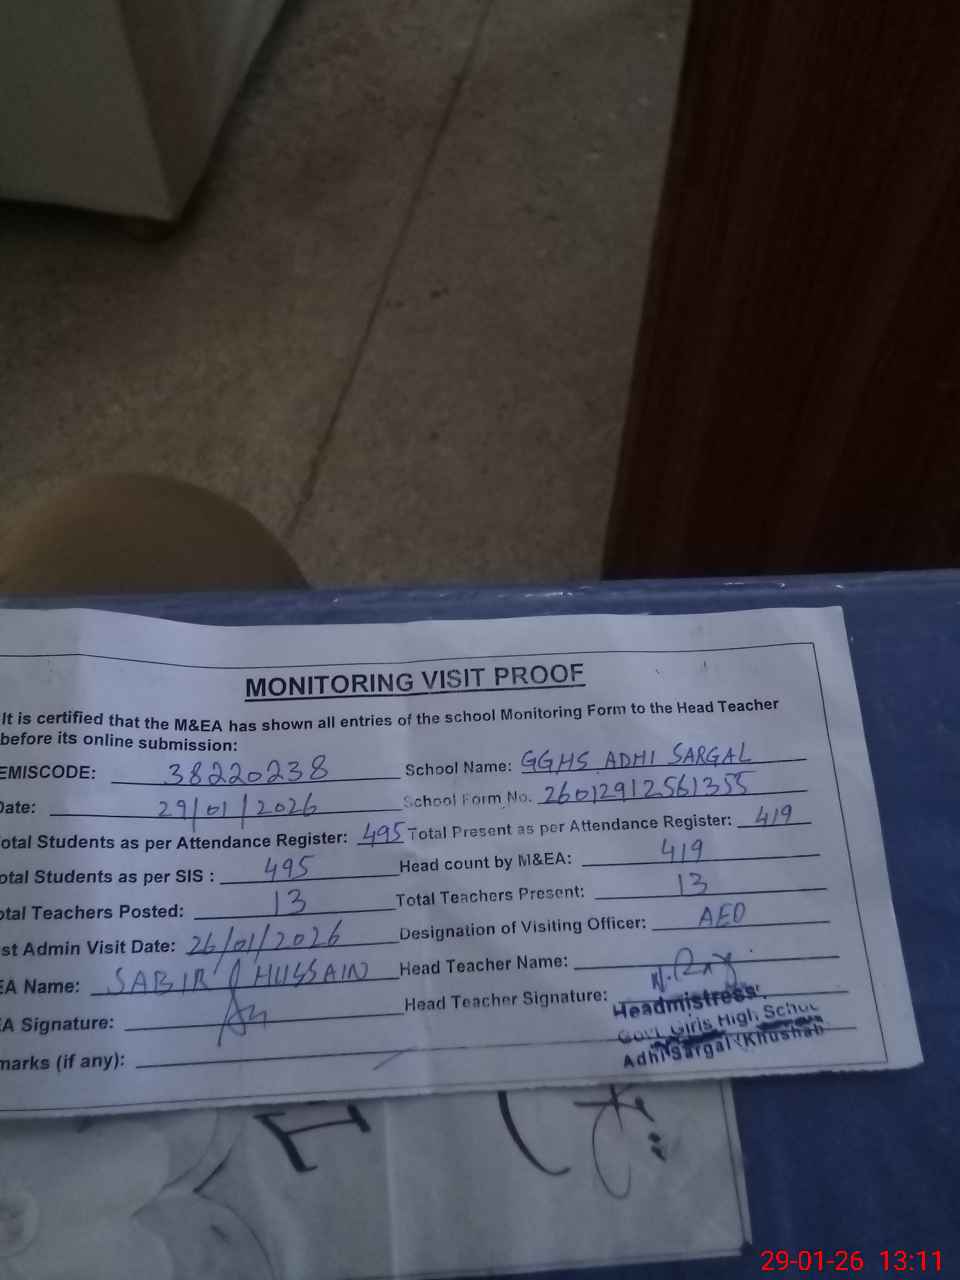 MONITORING VISIT PROOF
It is certified that the M&EA has shown all entries of the school Monitoring Form to the Head Teacher
before its online submission:
EMISCODE: 38220238 School Name: GGHS ADHI SARGAL
Date: 29/01/2026 School Form No. 26012912561355
otal Students as per Attendance Register: 495 Total Present as per Attendance Register: 419
otal Students as per SIS : 495 Head count by M&EA: 419
otal Teachers Posted: 13 Total Teachers Present: 13
st Admin Visit Date: 26/01/2026 Designation of Visiting Officer: AEO
EA Name: SABIR HUSSAIN Head Teacher Name:
A Signature: Head Teacher Signature:
Headmistress
Govt. Girls High School
marks (if any): Adhi Sargal (Khushab)
29-01-26 13:11